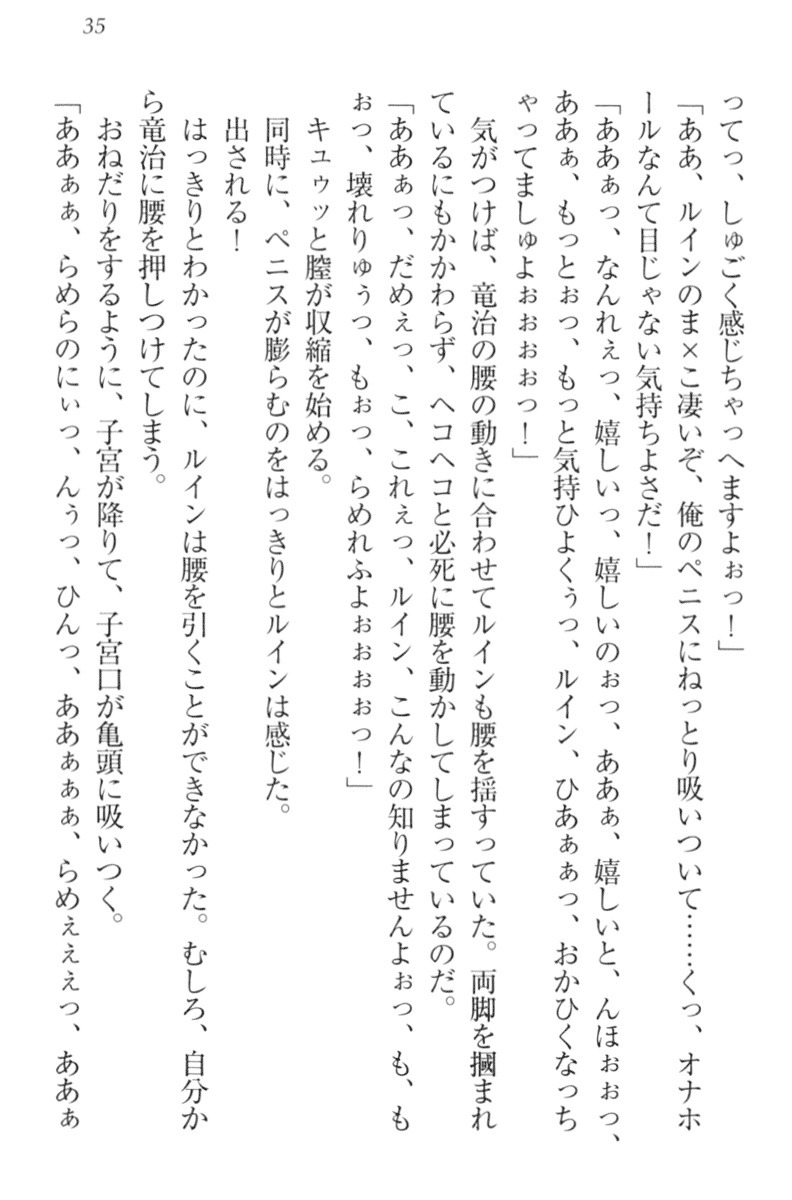 35
ってっ、しゅごく感じちゃっへますよぉっ！」
「ああ、ルインのま×こ凄いぞ、俺のペニスにねっとり吸いついて……くっ、オナホ
ールなんて目じゃない気持ちよさだ！」
「ああぁっ、なんれぇっ、嬉しいっ、嬉しいのぉっ、ああぁ、嬉しいと、んほぉぉっ、
ああぁ、もっとぉっ、もっと気持ひよくぅっ、ルイン、ひあぁぁっ、おかひくなっち
ゃってましゅよぉぉぉぉっ！」
気がつけば、竜治の腰の動きに合わせてルインも腰を揺すっていた。両脚を摑まれ
ているにもかかわらず、ヘコヘコと必死に腰を動かしてしまっているのだ。
「ああぁっ、だめぇっ、こ、これぇっ、ルイン、こんなの知りませんよぉっ、も、も
ぉっ、壊れりゅぅっ、もぉっ、らめれふよぉぉぉぉっ！」
キュゥッと膣が収縮を始める。
同時に、ペニスが膨らむのをはっきりとルインは感じた。
出される！
はっきりとわかったのに、ルインは腰を引くことができなかった。むしろ、自分か
ら竜治に腰を押しつけてしまう。
おねだりをするように、子宮が降りて、子宮口が亀頭に吸いつく。
「ああぁぁ、らめらのにぃっ、んぅっ、ひんっ、ああぁぁぁ、らめぇぇぇっ、ああぁ